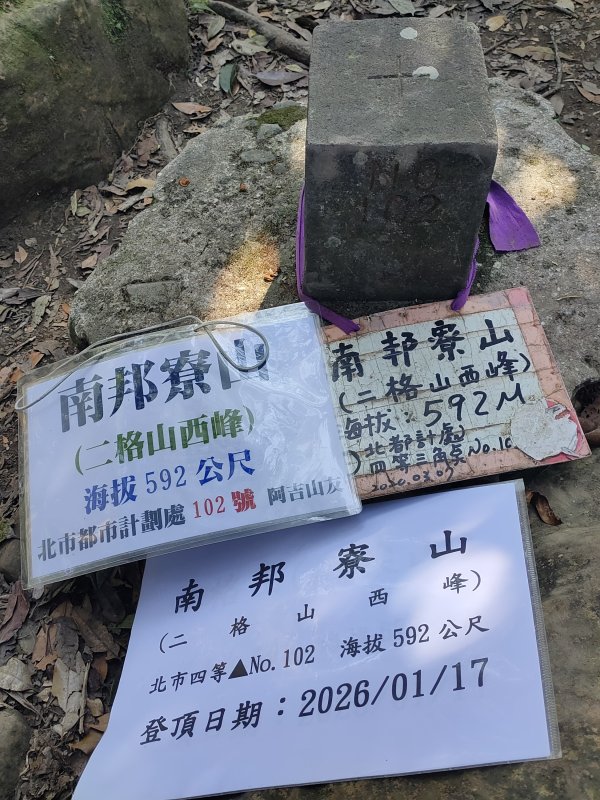 NO
102
南邦寮山
(二格山西峰)
海拔 592 公尺
北市都市計劃處 102 號 阿吉山友
南邦寮山
(二格山西峰)
海拔:592M
北都計處
四等三角點No.10
南邦寮山
(二格山西峰)
北市四等▲No.102 海拔 592 公尺
登頂日期:2026/01/17